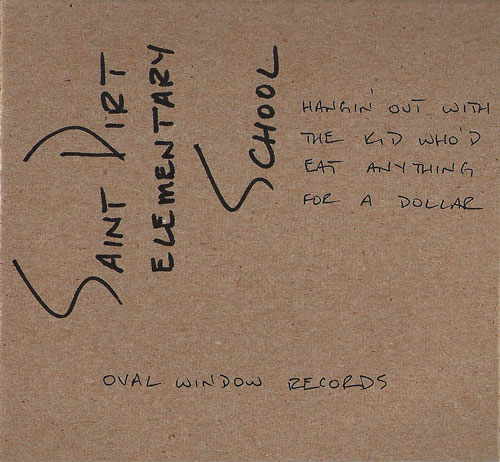 SAINT DIRT
ELEMENTARY
SCHOOL
HANGIN' OUT WITH
THE KID WHO'D
EAT ANYTHING
FOR A DOLLAR
OVAL WINDOW RECORDS